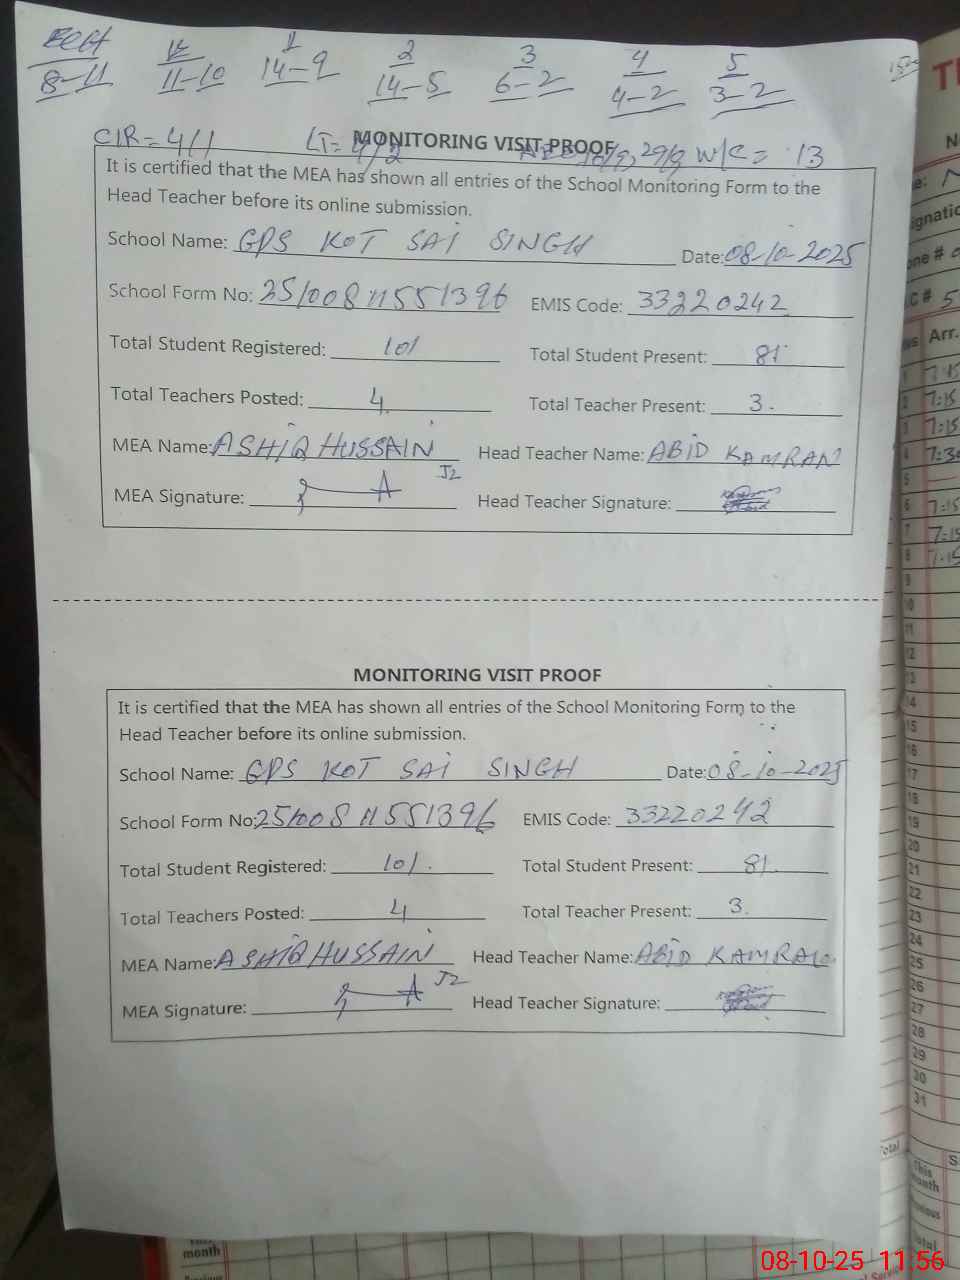 ECCE K 1 2 3 4 5
8-11 11-10 14-9 14-5 6-2 4-2 3-2
CIR = 4/1 LT = 4/2 29/9 W/C = 13
MONITORING VISIT PROOF
It is certified that the MEA has shown all entries of the School Monitoring Form to the
Head Teacher before its online submission.
School Name: GPS KOT SAI SINGH Date: 08-10-2025
School Form No: 251008 11551396 EMIS Code: 33220242
Total Student Registered: 101 Total Student Present: 81
Total Teachers Posted: 4 Total Teacher Present: 3.
MEA Name: ASHIQ HUSSAIN Head Teacher Name: ABID KAMRAN
J2
MEA Signature: Head Teacher Signature:
MONITORING VISIT PROOF
It is certified that the MEA has shown all entries of the School Monitoring Form to the
Head Teacher before its online submission.
School Name: GPS KOT SAI SINGH Date: 08-10-2025
School Form No: 251008 11551396 EMIS Code: 33220242
Total Student Registered: 101. Total Student Present: 81.
Total Teachers Posted: 4 Total Teacher Present: 3.
MEA Name: ASHIQ HUSSAIN Head Teacher Name: ABID KAMRAN
J2
MEA Signature: Head Teacher Signature:
Arr.
7:15
2 7:15
3 7:15
4 7:30
5
6 7:15
7 7:15
8 7:15
9
10
11
12
13
14
15
16
17
18
19
20
21
22
23
24
25
26
27
28
29
30
31
This
month
month
08-10-25 11:56